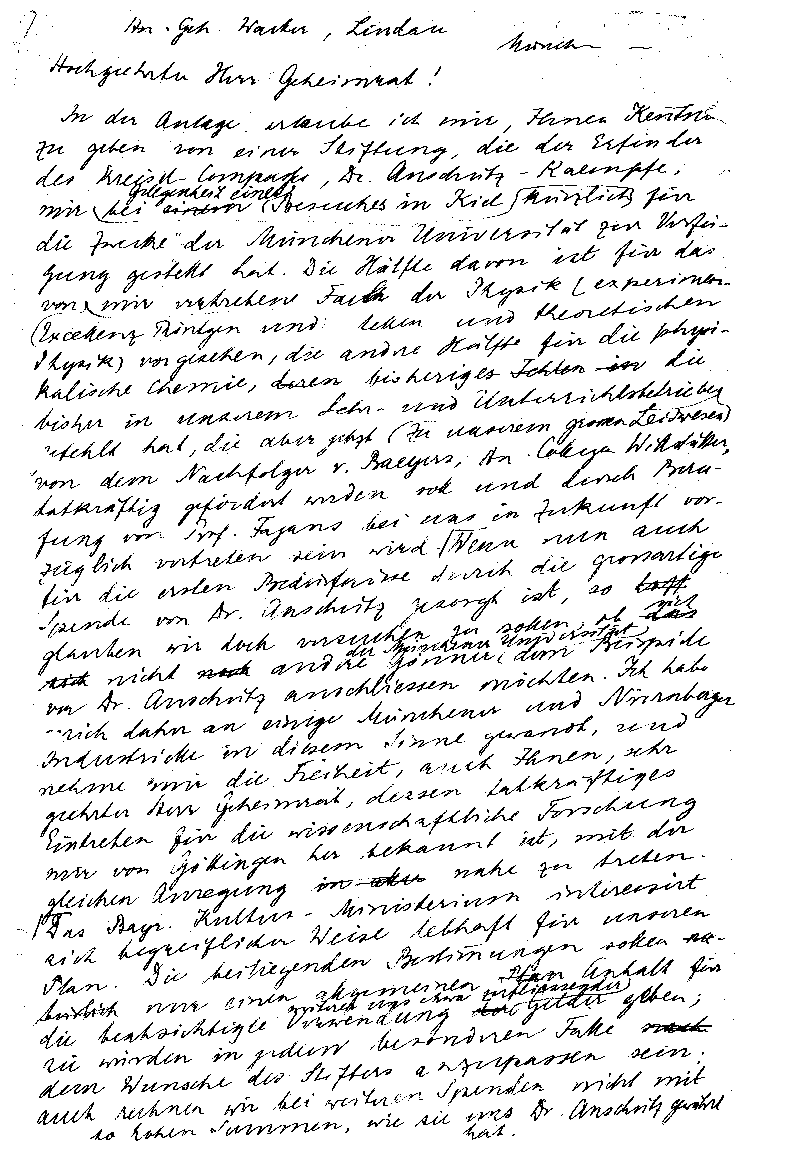 Hrn. Geh. Wacker, Lindau
München
Hochgeehrter Herr Geheimrat!
In der Anlage erlaube ich mir, Ihnen Kenntnis
zu geben von einer Stiftung, die der Erfinder
des Kreisel-Compasses, Dr. Anschütz-Kaempfe,
gelegenheit eines
mir bei einem Besuches in Kiel kürzlich für
die Zwecke der Münchener Universität zur Verfü-
gung gestellt hat. Die Hälfte davon ist für das
von mir vertretene Fach der Physik (experimen-
(Excellenz Röntgen und tellen und theoretischen
Physik) vorgesehen, die andre Hälfte für die physi-
kalische Chemie, deren bisheriges Fehlen in die
bisher in unserem Lehr- und Unterrichtsbetriebe
gefehlt hat, die aber jetzt (zu unserem grossen Leidwesen)
von dem Nachfolger v. Baeyers, Hr. College Willstätter,
tatkräftig gefördert werden soll und durch Beru-
fung von Prof. Fajans bei uns in Zukunft vor-
züglich vertreten sein wird. Wenn nun auch
für die ersten Bedürfnisse durch die grossartige
Spende von Dr. Anschütz gesorgt ist, so
glauben wir doch versuchen zu sollen, ob
der Münchener Universität
nicht noch andre Gönner dem Beispiele
von Dr. Anschütz anschliessen möchten. Ich habe
mich daher an einige Münchener und Nürnberger
Industrielle in diesem Sinne gewandt, und
nehme mir die Freiheit, auch Ihnen, sehr
geehrter Herr Geheimrat, dessen tatkräftiges
Eintreten für die wissenschaftliche Forschung
mir von Göttingen her bekannt ist, mit der
gleichen Anregung nahe zu treten.
Das Bayr. Kultus-Ministerium interessirt
sich begreiflicher Weise lebhaft für unseren
Plan. Die beiliegenden Bestimmungen sollen
nur einen allgemeinen Plan Anhalt für
weiterer uns etwa zufliessender
die beabsichtigte Verwendung der Gelder geben;
sie würden in jedem besonderen Falle nach
dem Wunsche des Stifters anzupassen sein;
auch rechnen wir bei weiteren Spenden nicht mit
so hohen Summen, wie sie uns Dr. Anschütz gewährt
hat.